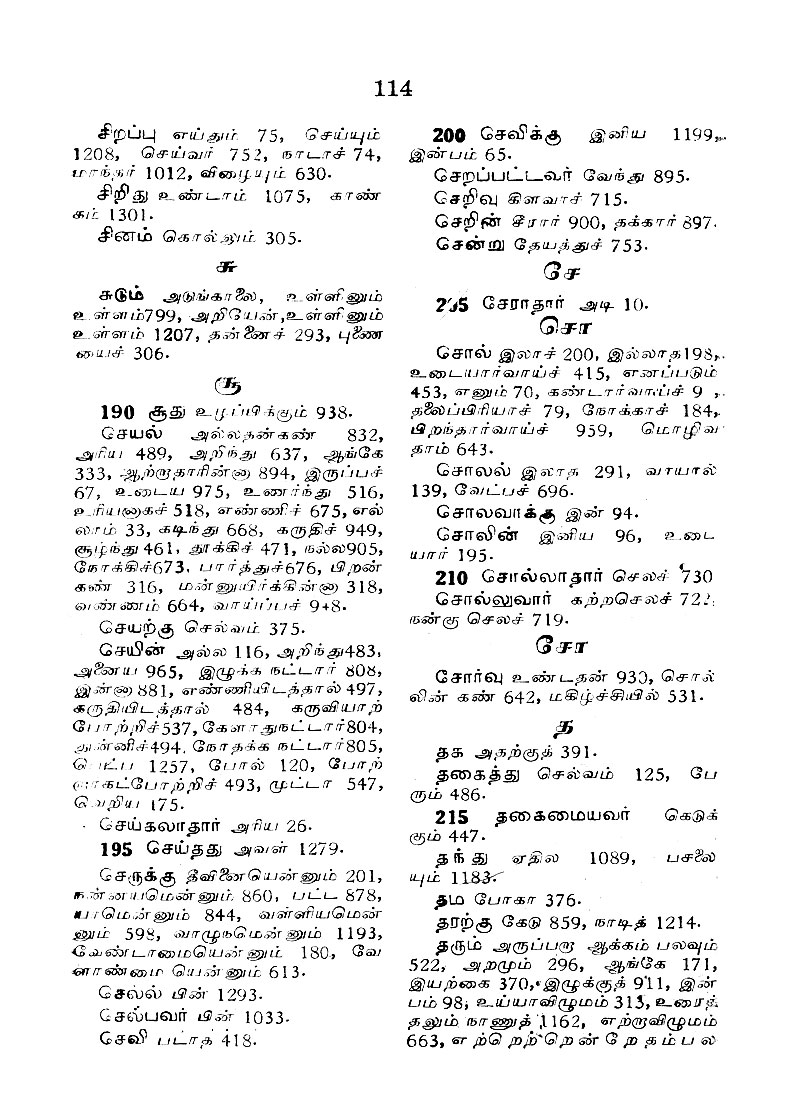 114
சிறப்பு எய்தும் 75, செய்யும்
1208, செய்வர் 752, நாடாச் 74,
மாந்தர் 1012, விழையும் 630.
சிறிது உண்டாம் 1075, காண்
கம் 1301.
சினம் கொல்லும் 305.
சு
சுடும் அடுங்காலை, உள்ளினும்
உள்ளம்799, அறியேன்,உள்ளினும்
உள்ளம் 1207, தன்னைச் 293, புணை
யைச் 306.
சூ
190 சூது உழப்பிக்கும் 938.
செயல் அல்லதன்கண் 832,
அரிய 489, அறிந்து 637, ஆங்கே
333, ஆற்றாதாரின்னா 894, இருப்பச்
67, உடைய 975, உணர்ந்து 516,
உரியனாகச் 518, எண்ணிச் 675, எல்
லாம் 33, கடிந்து 668, கருதிச் 949,
சூழ்ந்து 461, தூக்கிச் 471, நல்ல905,
நோக்கிச்673, பார்த்துச்676, பிறன்
கண் 316, மன்னுயிர்க்கின்னா 318,
வண்ணம் 664, வாய்ப்பச் 948.
செயற்கு செல்வம் 375.
செயின் அல்ல 116, அறிந்து483,
அனைய 965, இழுக்க நட்டார் 808,
இன்னா 881, எண்ணியிடத்தால் 497,
கருதியிடத்தால் 484, கருவியாற்
போற்றிச்537, கேளாதுநட்டார்804,
துன்னிச்494, நோதக்க நட்டார்805,
பெட்ப 1257, போல் 120, போற்
றார்கட்போற்றிச் 493, முட்டா 547,
வெறிய 175.
செய்கலாதார் அரிய 26.
195 செய்தது அவள் 1279.
செருக்கு தீவினையென்னும் 201,
நன்னயமென்னும் 860, பட்ட 878,
யாமென்னும் 844, வள்ளியமென்
னும் 598, வாழுநமென்னும் 1193,
வேண்டாமையென்னும் 180, வே
ளாண்மை யென்னும் 613.
செல்ல் பின் 1293.
செல்பவர் பின் 1033.
செவி படாத 418.
200 செவிக்கு இனிய 1199,
இன்பம் 65.
செறப்பட்டவர் வேந்து 895.
செறிவு கிளவாச் 715.
செறின் சீரார் 900, தக்கார் 897.
சென்று தேயத்துச் 753.
சே
205 சேராதார் அடி 10.
சொ
சொல் இலாச் 200, இல்லாத198,
உடையார்வாய்ச் 415, எனப்படும்
453, எனும் 70, கண்டார்வாய்ச் 9 ,
தலைப்பிரியாச் 79, நோக்காச் 184,
பிறந்தார்வாய்ச் 959, மொழிவ
தாம் 643.
சொலல் இலாத 291, வாயால்
139, வேட்பச் 696.
சொலவாக்கு இன் 94.
சொலின் இனிய 96, உடை
யார் 195.
210 சொல்லாதார் செலச் 730
சொல்லுவார் கற்றசெலச் 722,
நன்கு செலச் 719.
சோ
சோர்வு உண்டதன் 930, சொல்
லின் கண் 642, மகிழ்ச்சியில் 531.
த
தக அதற்குத் 391.
தகைத்து செல்வம் 125, பே
ரும் 486.
215 தகைமையவர் கெடுக்
கும் 447.
தந்து ஏதில 1089, பசலை
யும் 1183.
தம போகா 376.
தரற்கு கேடு 859, நாடித் 1214.
தரும் அருப்பரு ஆக்கம் பலவும்
522, அறமும் 296, ஆங்கே 171,
இயற்கை 370, இழுக்குத் 911, இன்
பம் 98; உய்யாவிழுமம் 313, உரைத்
தலும் நாணுத் 1162, எற்றாவிழுமம்
663, எற்றெற்றென்றேதம்பல